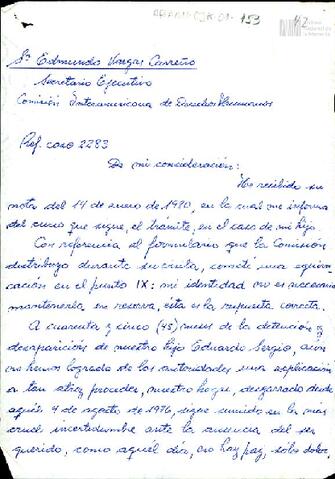 153
112
Dr Edmundo Vargas Carreño
Secretario Ejecutivo
Comisión Interamericana de Derechos Humanos
Ref. caso 2283
De mi consideración:
He recibido su
nota del 14 de enero de 1980, en la cual me informa
del curso que sigue, el trámite, en el caso de mi hijo.
Con referencia al formulario que la Comisión
distribuyo durante su visita, cometí una equivo
cación en el punto IX; mi identidad no es necesario
mantenerla en reserva, ésta es la respuesta correcta.
A cuarenta y cinco (45) meses de la detención y
desaparición de nuestro hijo Eduardo Sergio, aún
no hemos logrado de las autoridades una explicación
a tan atroz proceder, nuestro hogar, desgarrado desde
aquél 4 de agosto de 1976, sigue sumido en la mas
cruel incertidumbre ante la ausencia del ser
querido, como aquél día, no hay paz, sólo dolor,